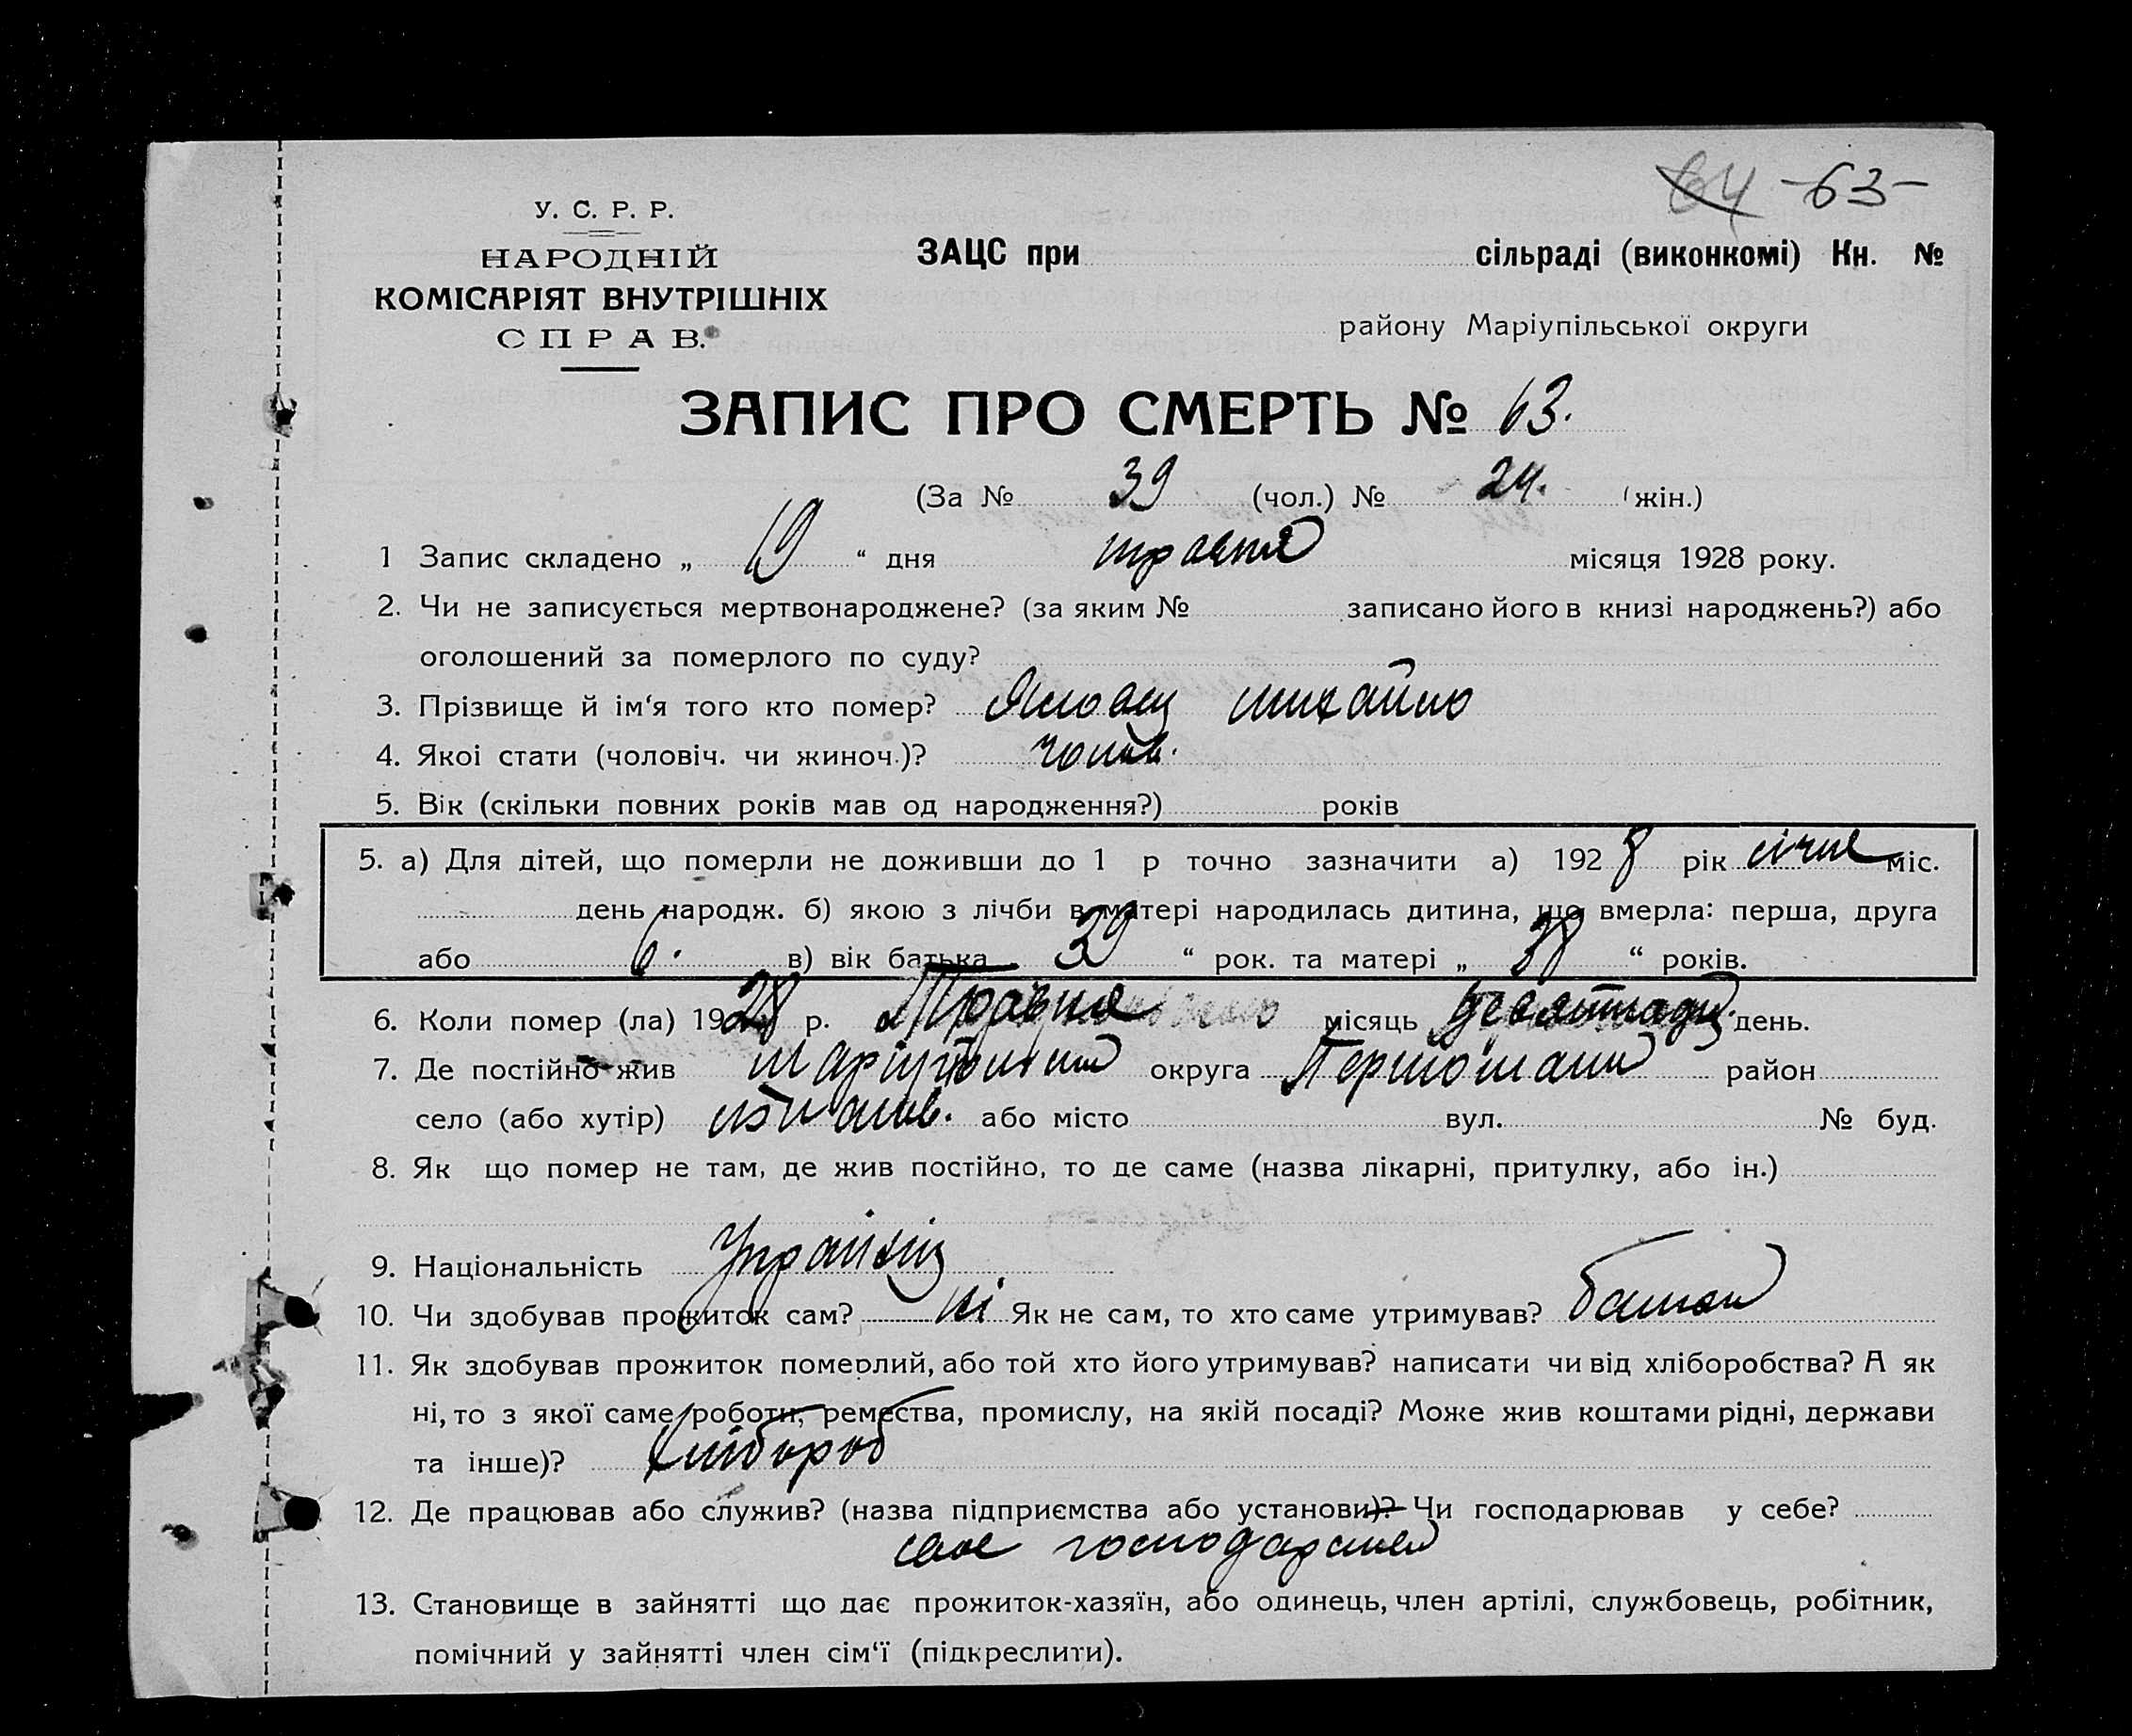 64 -63-
У. С. Р. Р.
НАРОДНІЙ
КОМІСАРІЯТ ВНУТРІШНІХ
СПРАВ.
ЗАЦС при сільраді (виконкомі) Кн. №
району Маріупільської округи
ЗАПИС ПРО СМЕРТЬ № 63.
(За № 39 (чол.) № 24. (жін.)
1 Запис складено „ 19 “ дня травня місяця 1928 року.
2. Чи не записується мертвонароджене? (за яким № записано його в книзі народжень?) або
оголошений за померлого по суду?
3. Прізвище й ім‘я того кто помер? Михайло
4. Якоі стати (чоловіч. чи жиноч.)? чолов.
5. Вік (скільки повних років мав од народження?) років
5. а) Для дітей, що померли не доживши до 1 р точно зазначити а) 1928 рік січня міс.
день народж. б) якою з лічби в матері народилась дитина, що вмерла: перша, друга
або 6. в) вік батька 39 “ рок. та матері „ 38 “ років.
6. Коли помер (ла) 1928 р. Травня місяць девятнадц. день.
7. Де постійно жив округа район
село (або хутір) або місто вул. № буд.
8. Як що помер не там, де жив постійно, то де саме (назва лікарні, притулку, або ін.)
9. Національність Українец
10. Чи здобував прожиток сам? ні Як не сам, то хто саме утримував? батько
11. Як здобував прожиток померлий, або той хто його утримував? написати чи від хліборобства? А як
ні, то з якої саме роботи, ремества, промислу, на якій посаді? Може жив коштами рідні, держави
та інше)? Хлібороб
12. Де працював або служив? (назва підприємства або установи)? Чи господарював у себе?
своє господарство
13. Становище в зайнятті що дає прожиток-хазяїн, або одинець, член артілі, службовець, робітник,
помічний у зайнятті член сім‘ї (підкреслити).